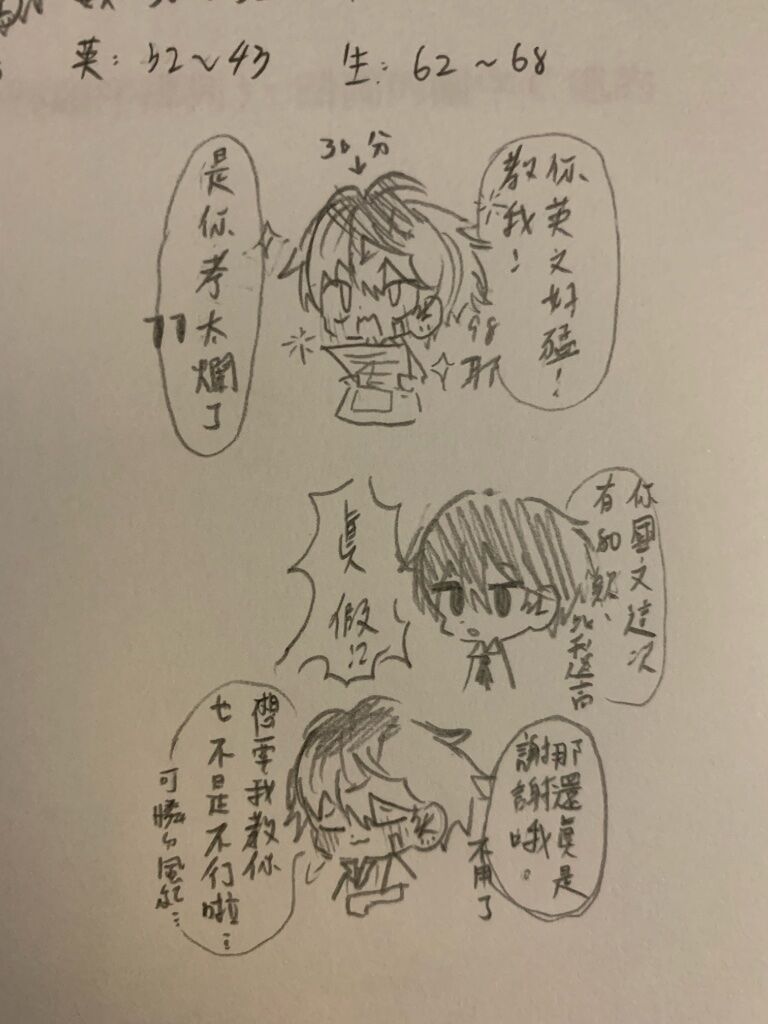 英: 32~43
生: 62~68
30分
你英文好猛!
教我!
98
耶
是你考太爛了
你國文這次
有80欸、
比我還高
真假!?
那還真是
謝謝哦。
不用了
想要我教你
也不是不行啦…